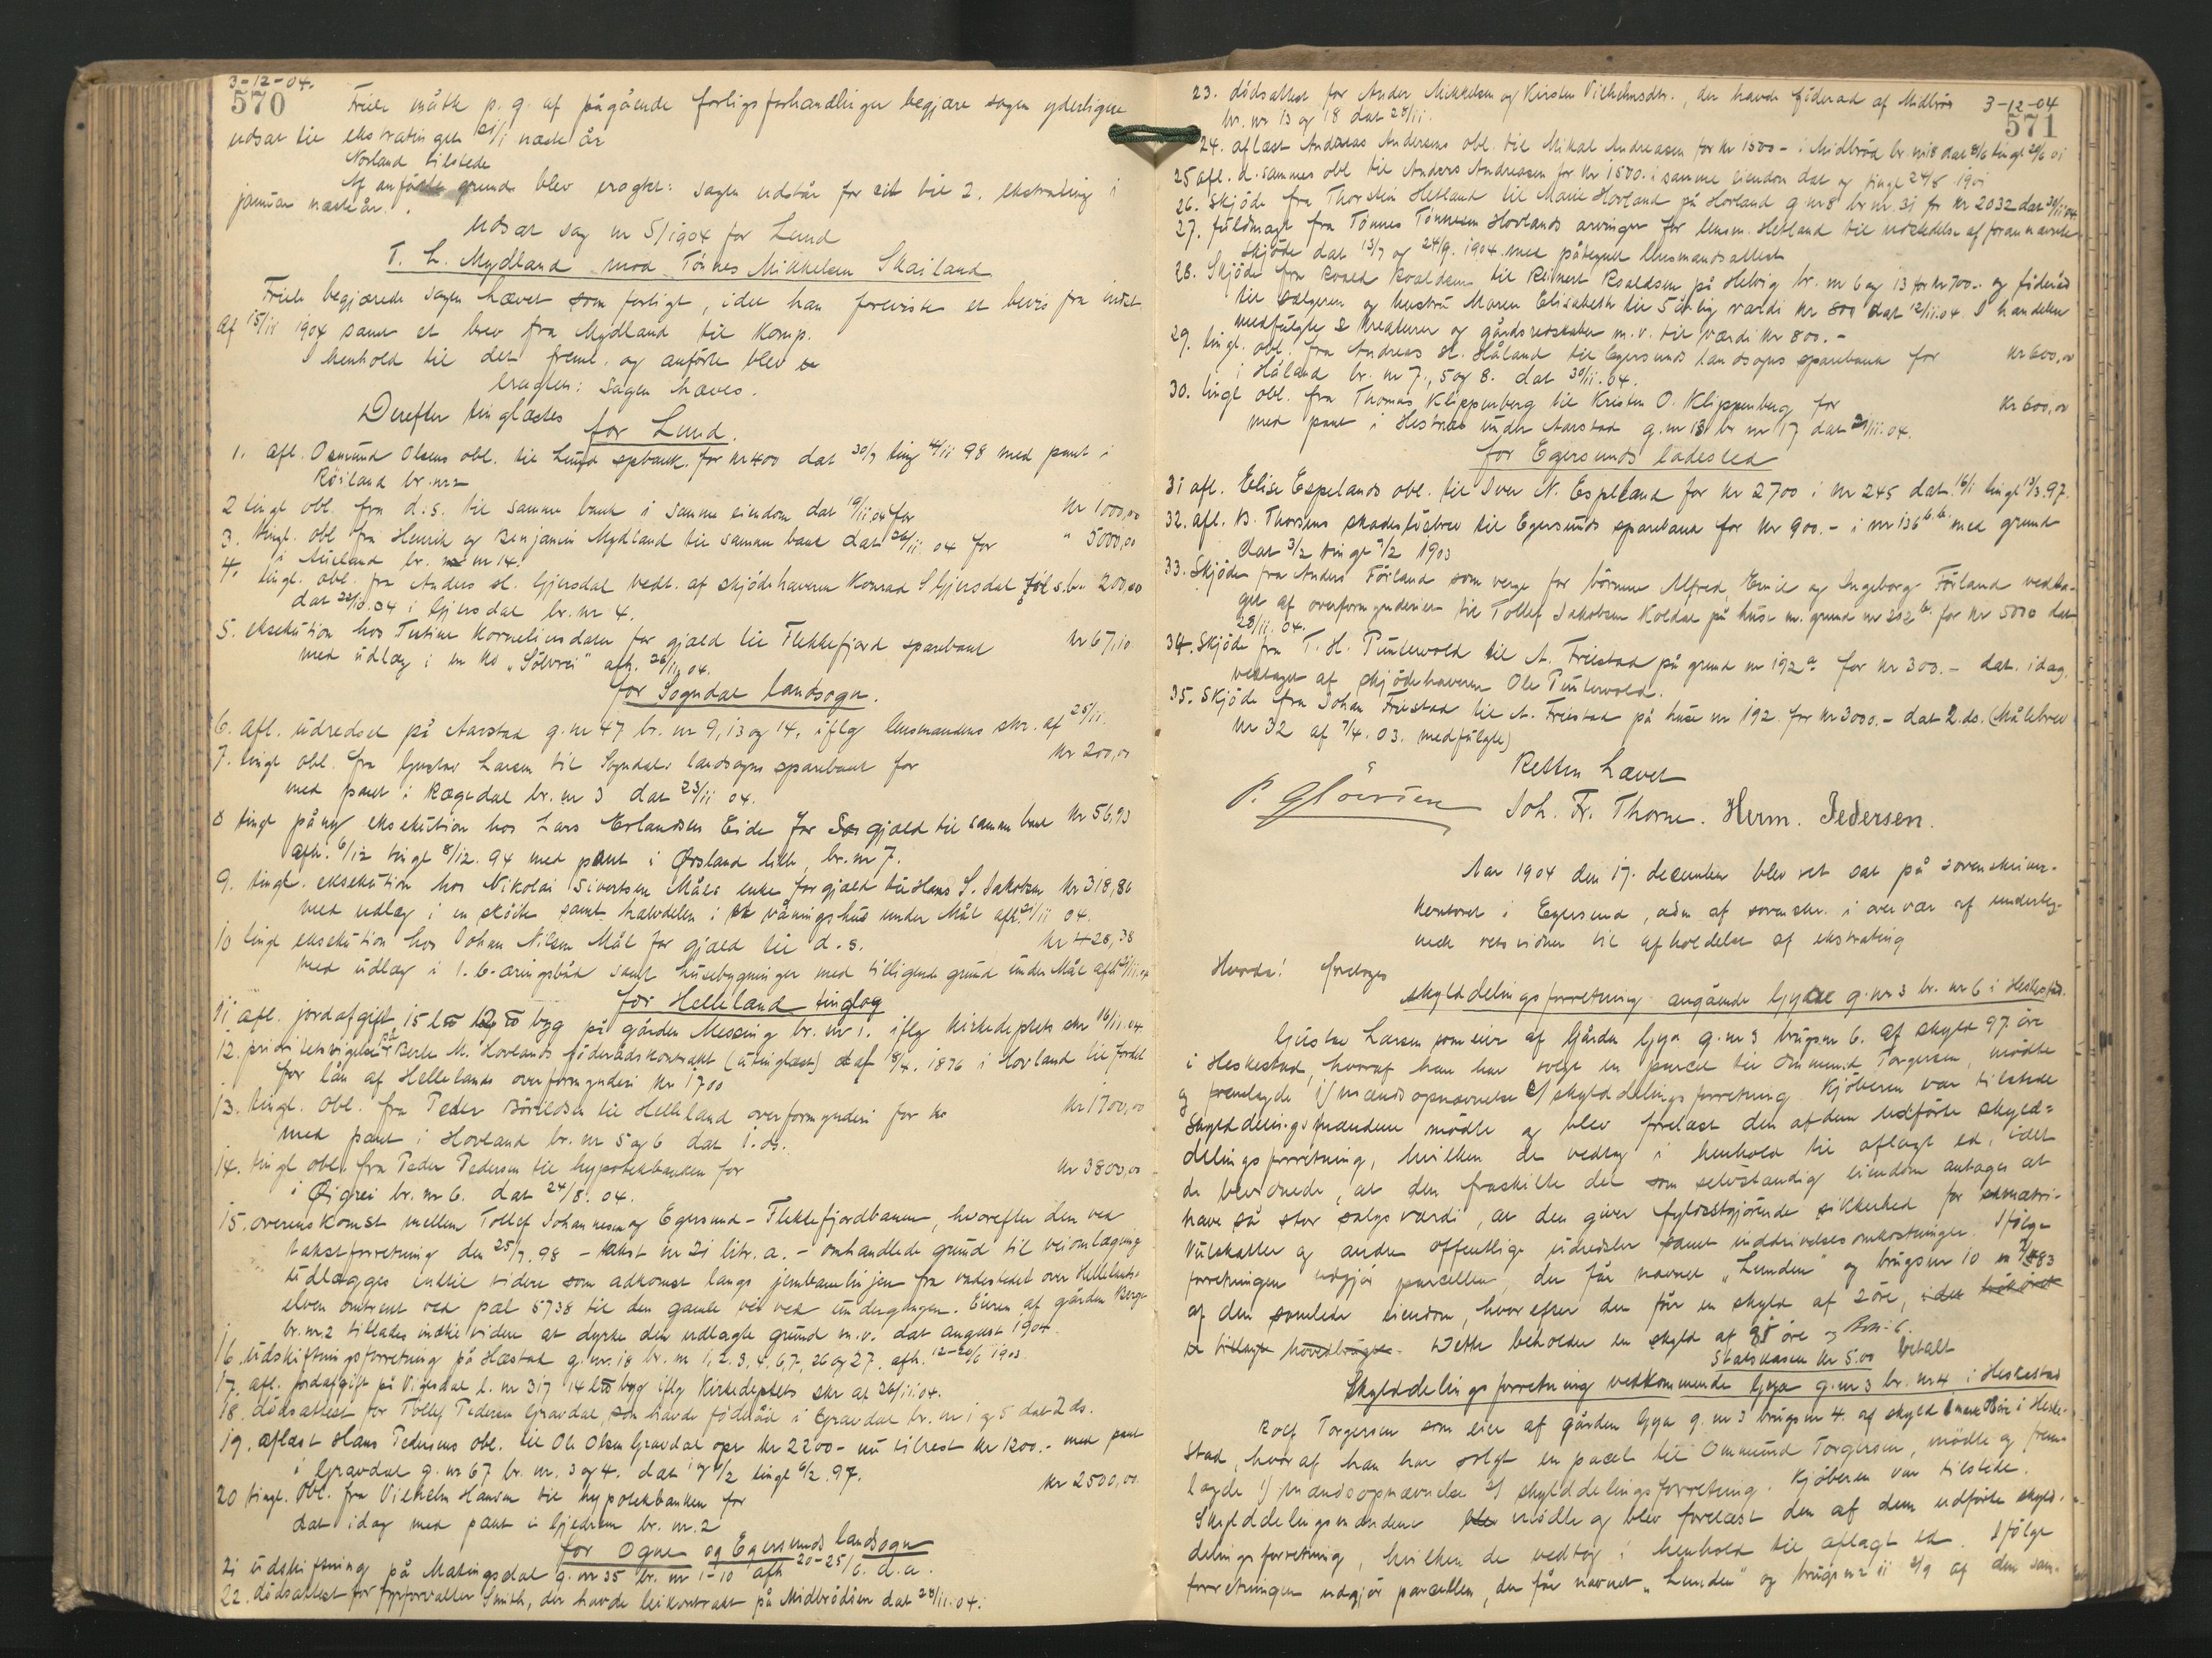 3-12-04.
570
Friele måtte p. g. af pågående forligsforhandlinger begjære sagen yderligere
udsat til ekstratinget 21/1 næste år
Norland tilstede
Af anførte grunde blev eragtet: sagen udstår for sit til 2. ekstrating i
januar næste år.
Udsat sag nr 5/1904 for Lund
T. L. Mydland mod Tönnes Mikkelsen Skailand
Friele begjærede sagen hævet som forligt, idet han foreviste et bevis fra indst.
af 15/11 1904 samt et brev fra Mydland til Komp.
I henhold til det freml. og anførte blev
eragtet: sagen hæves.
Derefter tinglæstes
for Lund.
1. afl. Osmund Olsens obl. til Lund spbank. for kr 400 dat 30/7 tingl 4/11 98 med pant i
Röiland br. nr 2
2 tingl obl. fra d.s. til samme bank i samme eiendom dat 19/11.04 for kr 1000,00
3. tingl. obl fra Henrik og Benjamin Mydland til samme bank dat 26/11 04 for " 5000,00
i Aueland br. nr 14.
4. tingl. obl. fra Anders H. Gjersdal vedt. af skjødehaveren Konrad S Gjersdal til s.b. 200,00
dat 22/10.04 i Gjersdal br. nr 4.
5. eksekution hos Tertine Korneliusdatter for gjæld til Flekkefjord sparebank kr 67,10
med udlæg i en ko "Sölvrei" afh. 26/11 04.
for Sogndal landsogn.
6. afl. udredsel på Aarstad g. nr 47 br. nr 9, 13 og 14. iflg lensmandens skr. af 25/11.
7. tingl obl. fra Gustav Larsen til Sogndals landsogns sparebank for kr 200,00
med pant i Rægedal br. nr 3 dat 23/11 04.
8 tingl påny eksekution hos Lars Erlandsen Eide for gjæld til samme bank kr 56,93
afh. 6/12 tingl 8/12. 94 med pant i Ørsland lille, br. nr 7.
9. tingl. eksekution hos Nikolai Sivertsen Måls enke for gjæld til Hans S. Jakobsen kr 318,86
med udlæg i en sköite samt halvdelen i et våningshus under Mål afh. 21/11 04.
10 tingl eksekution hos Johan Nilsen Mål for gjæld til d. s. kr 428,38
med udlæg i 1. 6-æringsbåd samt husebygninger med tilligende grund under Mål afh 21/11.04
for Helleland tinglag
11 afl. jordafgift 15 byg på gården Messing br. nr 1. iflg kirkedeptets skr 16/11.04
12. prioritetsvigelse på Berte M. Hovlands föderådskontrakt (utinglæst) af 18/4. 1876 i Hovland til fordel
for lån af Hellelands overformynderi kr 1700
13. tingl. Obl. fra Peder Börildsen til Helleland overformynderi for kr 1700,00
med pant i Hovland br. nr 5 og 6 dat 1. ds.
14. tingl obl. fra Peder Pedersen til hypotekbanken for kr 3800,00
i Øigrei br. nr 6. dat 24/8. 04.
15. overenskomst mellem Tollef Johannesen og Egersund-Flekkefjordbanen, hvorefter den ved
takstforretning den 25/7. 98 - takst nr 21 litr. a. - omhandlede grund til veiomlægning
udlægges indtil videre som adkomst langs jernbanelinjen fra vadestedet over Hellelands-
elven omtrent ved pæl 5738 til den gamle vei ved undergangen. Eieren af gården Berge
br. nr 2 tillades indtil videre at dyrke den udlagte grund m. v. dat august 1904.
16. udskiftningsforretning på Hæstad g. nr. 18 br. nr 1, 2, 3, 4, 6, 7, 26 og 27, afh. 12-20/6 1903
17. afl. jordafgift på Vigesdal l. nr 317 14 byg iflg Kirkedeptets skr af 26/11.04.
18. dödsattest for Tollef Pedersen Gravdal, som havde föderåd i Gravdal br. nr 1 og 5 dat 2 ds.
19. aflæst Hans Pedersens obl. til Ole Olsen Gravdal opr kr 2200- nu tilrest kr 1200.- med pant
i Gravdal g. nr 67 br. nr. 3 og 4. dat 1/2 tingl 6/2. 97.
20 tingl. Obl. fra Vilhelm Hansen til hypotekbanken for kr 2500,00
dat idag med pant i Gjedrem br. nr. 2
for Ogne og Egersunds landsogn
21 udskiftning på Malingsdal g. nr 35 br. nr 1-10 afh 20-25/6. d. a.
22. dödsattest for fyrforvalter Smith, der havde leiekontrakt på Midbrödöen dat 28/11.04.
3-12-04
571
23. dödsattest for Ander Mikkelsen og Kirsten Vilhelmsdtr., der havde föderåd af Midbröd
br. nr 13 og 18 dat 28/11.
24. aflæst Andreas Andersens obl. til Mikal Andreasen for kr 1500- i Midbröd br. nr 18 dat 8/6 tingl 24/6 01
25 afl. d. sammes obl til Anders Andreasen for kr 1500. i samme eiendom dat og tingl 24/8 1901
26. Skjöde fra Thorstein Hetland til Marie Hovland på Hovland g nr 8 br nr. 31 for kr 2032 dat 30/11 04.
27. fuldmagt fra Tönnes Tönnesen Hovlands arvinger for lensm. Hetland til udstedelse af forannævnte
skjöde dat 15/7 og 24/9. 1904 med påtegnet lensmandsattest
28. Skjöde fra Roald Roaldsen til Reinert Roaldsen på Helvig br. nr 6 og 13 for kr 700.- og föderåd
til sælgeren og hustru Maren Elisabeth til 5 årlig værdi kr 800 dat 12/11.04. I handelen
medfulgte kreaturer og gårdsredskaber m. v. til værdi kr 800.-
29. tingl. obl. fra Andreas H. Håland til Egersunds landsogns sparebank for kr 600,00
i Håland br. nr 7, 5 og 8. dat 30/11.04.
30. tingl obl. fra Thomas Klippenberg til Kristen O. Klippenberg for kr 600,00
med pant i Hestnes under Aarstad g. nr 13 br nr 17 dat 21/11.04.
for Egersunds ladested
31 afl. Elise Espelands obl. til Iver N. Espeland for kr 2700 i nr 245 dat. 16/1 tingl 13/3. 97.
32. afl. B. Thorsens skadeslösbrev til Egersunds sparebank for kr 900.- i nr 136 b.b. med grund
dat 3/2 tingl 7/2 1903
33. Skjöde fra Anders Föiland som verge for börnene Alfred, Emil og Ingeborg Föiland vedta-
get af overformynderiet til Tollef Jakobsen Koldal på huse m. grund nr 202 b. for kr 5000 dat
28/11. 04.
34. Skjöde fra T. H. Puntervold til A. Friestad på grund nr 192 a for kr 300.- dat. idag.
vedtaget af skjödehaveren Ole Puntervold.
35. Skjöde fra Johan Friestad til A. Friestad på huse nr 192. for kr 3000.- dat 2. ds. (Målebrev
nr 32 af 7/4. 03. medfulgte)
Retten hævet
Joh. Fr. Thorne. Herm. Pedersen.
Aar 1904 den 17. december blev ret sat på sorenskriver-
kontoret i Egersund, adm af sorenskr. i overvær af underteg-
nede retsvidner til afholdelse af ekstrating
Hvorda! foretoges
skylddelingsforretning angående Gya g. nr 3 br. nr 6 i Heskestad.
Gustav Larsen som eier af Gården Gya g. nr 3 brugsnr 6. af skyld 97 öre
i Heskestad, hvoraf han har solgt en parcel til Ommund Torgersen, mödte
og fremlagde 1/ mændsopnævnelse 2/ skylddelingsforretning. Kjöberen var tilstede
Skylddelingsmændene mödte og blev forelæst den af dem udförte skyld-
delingsforretning, hvilken de vedtog i henhold til aflagt ed, idet
de bevidnede, at den fraskilte del som selvstændig eiendom antages at
have så stor salgsværdi, at den giver fyldestgjörende sikkerhed for amatri-
kulskatter og andre offentlige udredsler samt inddrivelsesomkostninger. Ifölge
forretningen udgjör parcellen, der får navnet "Lunden" og brugsnr 10 en
af den samlede eiendom, hvorefter den får en skyld af 2 öre,
Dette beholder en skyld af 95 öre og
Statskassen kr 5.00 betalt
Skylddelingsforretning vedkommende Gya g. nr 3 br. nr 4 i Heskestad
Rolf Torgersen som eier af gården Gya g. nr 3 brugsnr 4. af skyld 1 mark öre i Heske-
stad, hvoraf han har solgt en parcel til Ommund Torgersen, mödte og frem-
lagde 1/ mændsopnævnelse 2/ skylddelingsforretning. Kjöberen var tilstede.
Skylddelingsmændene mödte og blev forelæst den af dem udförte skyld-
delingsforretning, hvilken de vedtog i henhold til aflagt ed. Ifölge
forretningen udgjör parcellen, der får navnet "Lunden" og brugsnr 11 2/9 af den sam-